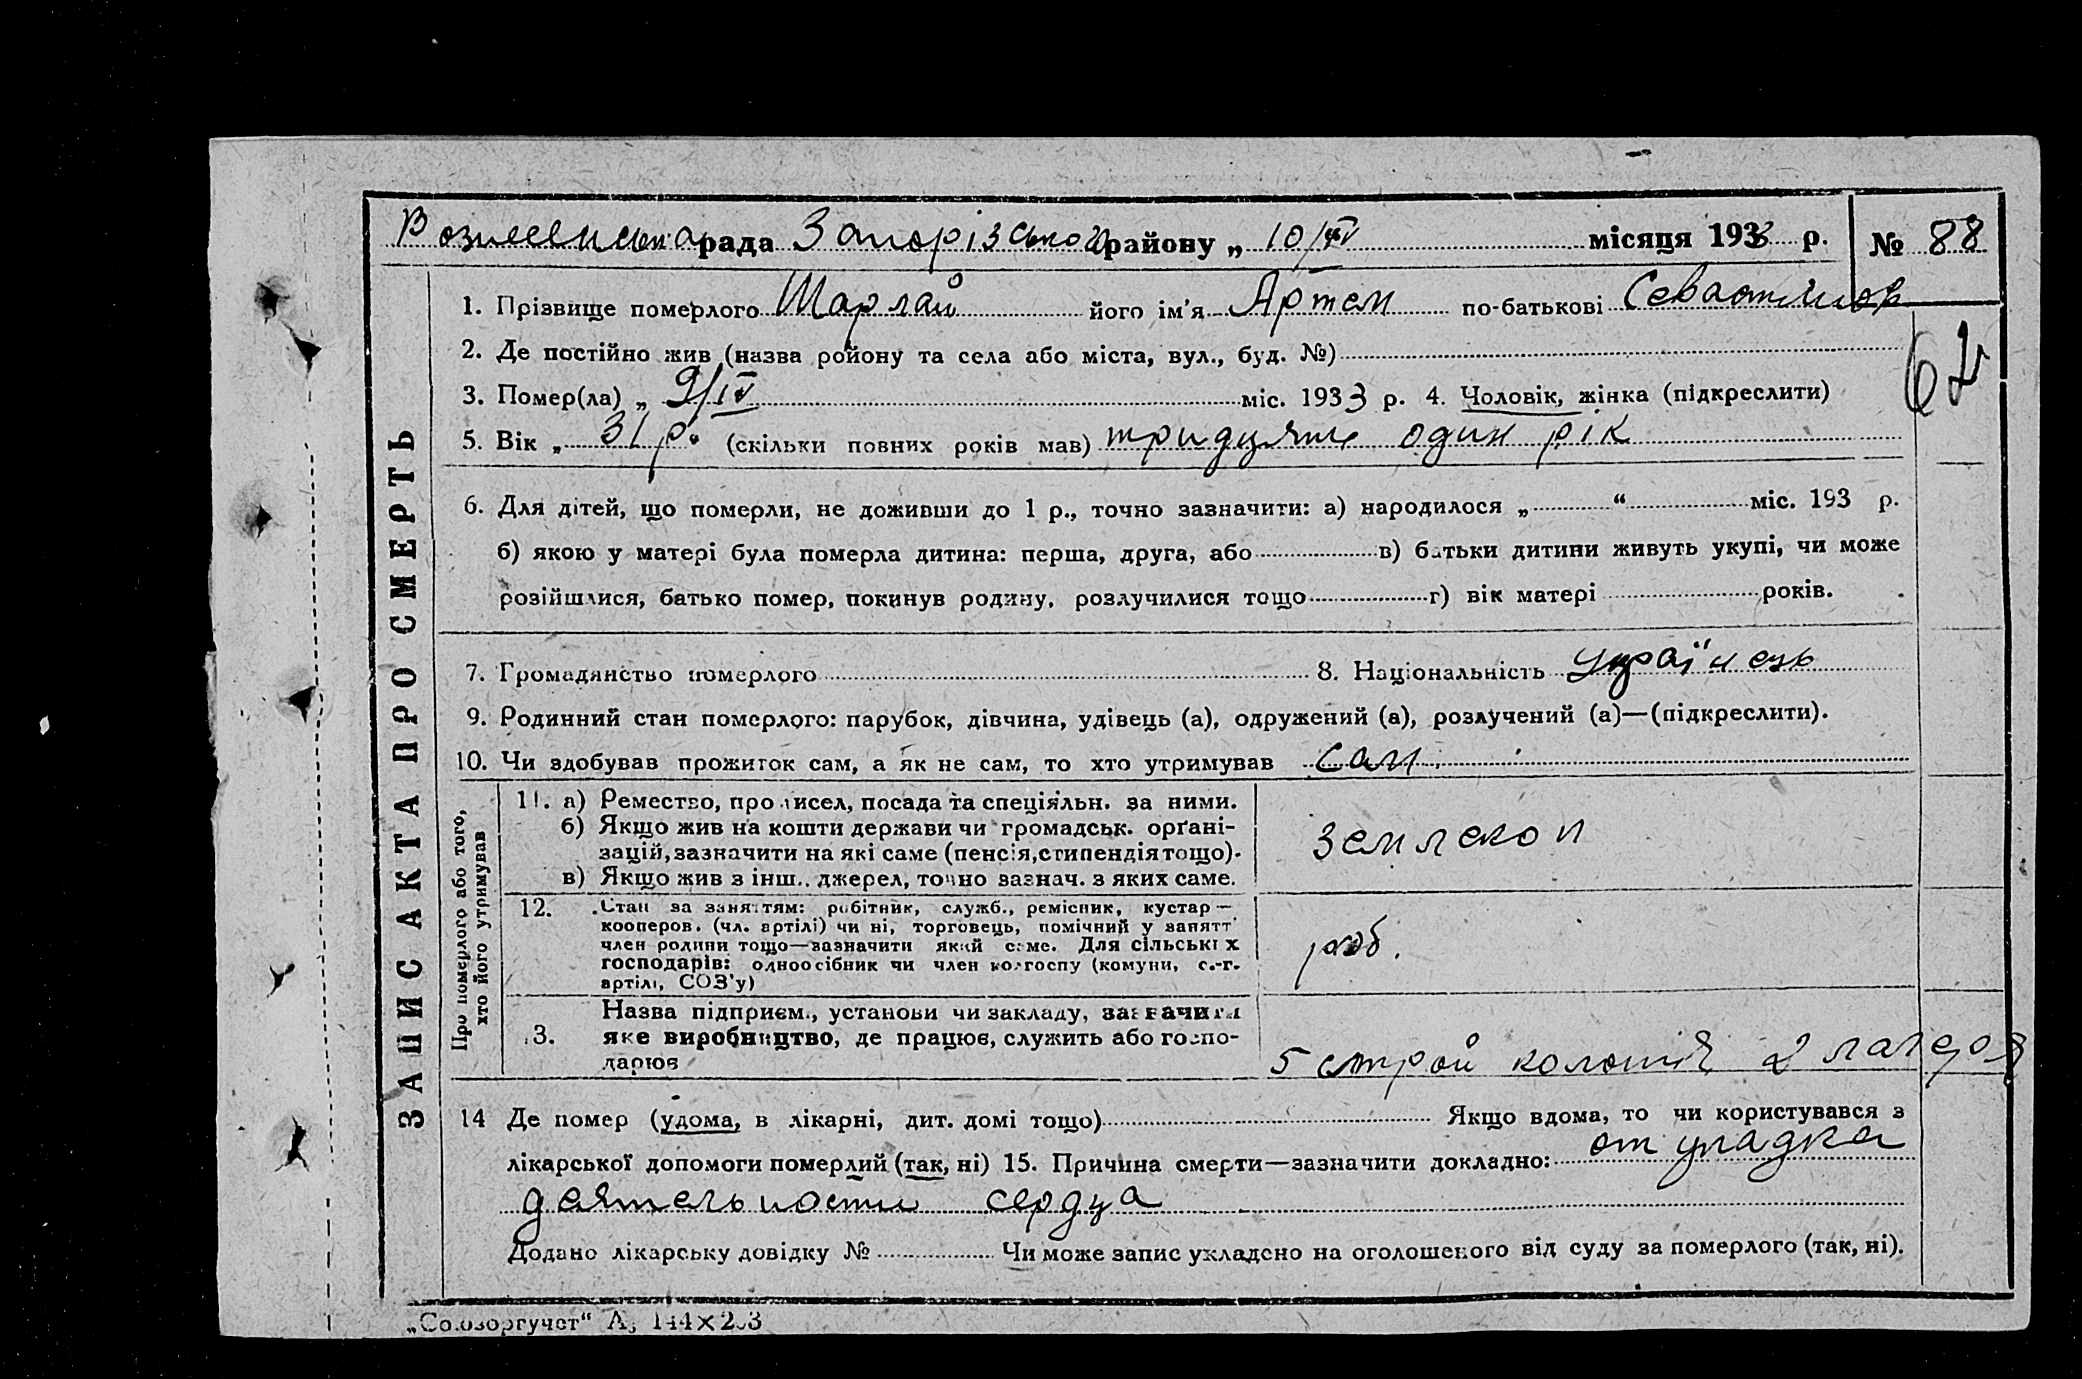 Вознесенська рада Запорізського району „ 10/IV місяця 1933 р. № 88
1. Прізвище померлого Шарлай його ім'я Артем по-батькові
2. Де постійно жив (назва району та села або міста, вул., буд. №)
3. Помер(ла) „ 9/IV міс. 1933 р. 4. Чоловік, жінка (підкреслити)
62
5. Вік „ 31 р. “ (скільки повних років мав) тридцять один рік
6. Для дітей, що померли, не доживши до 1 р., точно зазначити: а) народилося „ “ міс. 193 р.
б) якою у матері була померла дитина: перша, друга, або в) батьки дитини живуть укупі, чи може
розійшлися, батько помер, покинув родину, розлучилися тощо г) вік матері років.
7. Громадянство померлого 8. Національність українець
9. Родинний стан померлого: парубок, дівчина, удівець (а), одружений (а), розлучений (а)—(підкреслити).
10. Чи здобував прожиток сам, а як не сам, то хто утримував сам.
ЗАПИС АКТА ПРО СМЕРТЬ
Про померлого або того,
хто його утримував
11. а) Ремество, промисел, посада та спеціяльн. за ними.
б) Якщо жив на кошти держави чи громадськ. орґані-
зацій, зазначити на які саме (пенсія, стипендія тощо).
в) Якщо жив з інш. джерел, точно зазнач. з яких саме.
землекоп
12. Стан за заняттям: робітник, служб., ремісник, кустар—
кооперов. (чл. артілі) чи ні, торговець, помічний у занятт
член родини тощо—зазначити який саме. Для сільських
господарів: одноосібник чи член колгоспу (комуни, с.-г.
артілі, СОЗ'у)
роб.
13. Назва підприєм., установи чи закладу, зазначити
яке виробництво, де працює, служить або госпо-
дарює
5 строй
14 Де помер (удома, в лікарні, дит. домі тощо) Якщо вдома, то чи користувався з
лікарської допомоги померлий (так, ні) 15. Причина смерти—зазначити докладно: от упадка
деятельности сердца
Додано лікарську довідку № Чи може запис укладено на оголошеного від суду за померлого (так, ні).
„Союзоргучет“